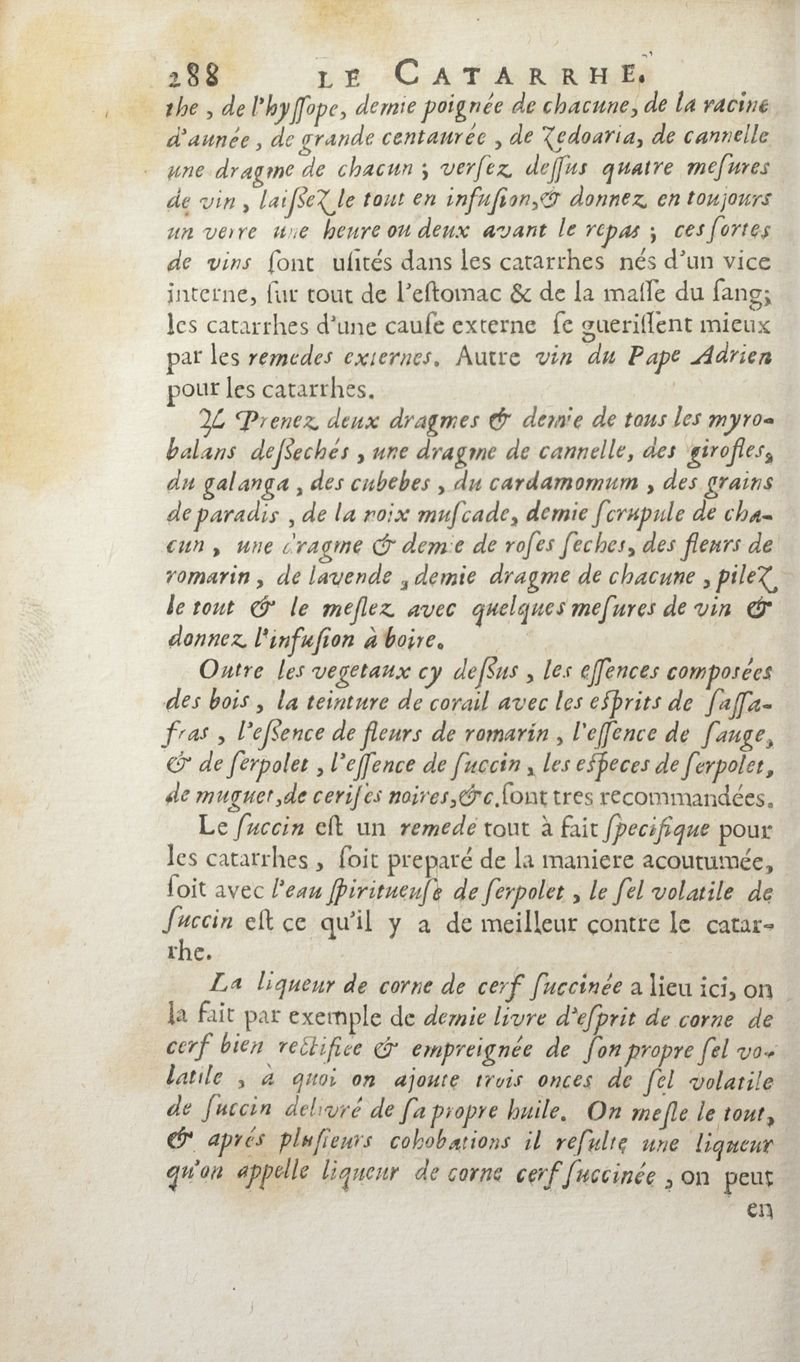 288 LE CATARRHE.
the , de l'hyſſope, demie poignée de chacune, de la racine
d'aunée , de grande centaurée , de Zedoaria, de cannelle
une dragme de chacun ; verſez deſſus quatre meſures
de vin , laiſſeZ le tout en infuſion,& donnez en toujours
un verre une heure ou deux avant le repas ; ces ſortes
de vins ſont uſités dans les catarrhes nés d'un vice
interne, ſur tout de l'eſtomac & de la maſſe du ſang;
les catarrhes d'une cauſe externe ſe gueriſſent mieux
par les remedes externes. Autre vin du Pape Adrien
pour les catarrhes.
♃ Prenez deux dragmes & demie de tous les myro-
balans deſſechés , une dragme de cannelle, des girofles,
du galanga , des cubebes , du cardamomum , des grains
de paradis , de la noix muſcade, demie ſcrupule de cha-
cun , une dragme & demie de roſes ſeches, des fleurs de
romarin , de lavende , demie dragme de chacune , pileZ
le tout & le meſlez avec quelques meſures de vin &
donnez l'infuſion à boire.
Outre les vegetaux cy deſſus , les eſſences composées
des bois , la teinture de corail avec les eſprits de ſaſſa-
fras , l'eſſence de fleurs de romarin , l'eſſence de ſauge,
& de ſerpolet , l'eſſence de ſuccin , les eſpeces de ſerpolet,
de muguet,de ceriſes noires,&c.ſont tres recommandées.
Le ſuccin eſt un remede tout à fait ſpecifique pour
les catarrhes , ſoit preparé de la maniere acoutumée,
ſoit avec l'eau ſpiritueuſe de ſerpolet , le ſel volatile de
ſuccin eſt ce qu'il y a de meilleur contre le catar-
rhe.
La liqueur de corne de cerf ſuccinée a lieu ici, on
la fait par exemple de demie livre d'eſprit de corne de
cerf bien rectifiée & empreignée de ſon propre ſel vo-
latile , à quoi on ajoute trois onces de ſel volatile
de ſuccin delivré de ſa propre huile. On meſle le tout,
& aprés pluſieurs cohobations il reſulte une liqueur
qu'on appelle liqueur de corne cerf ſuccinée , on peut
en